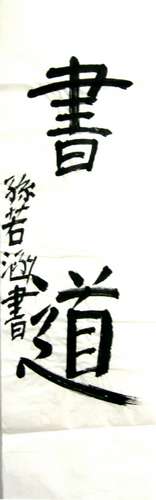 書道
孫若涵書